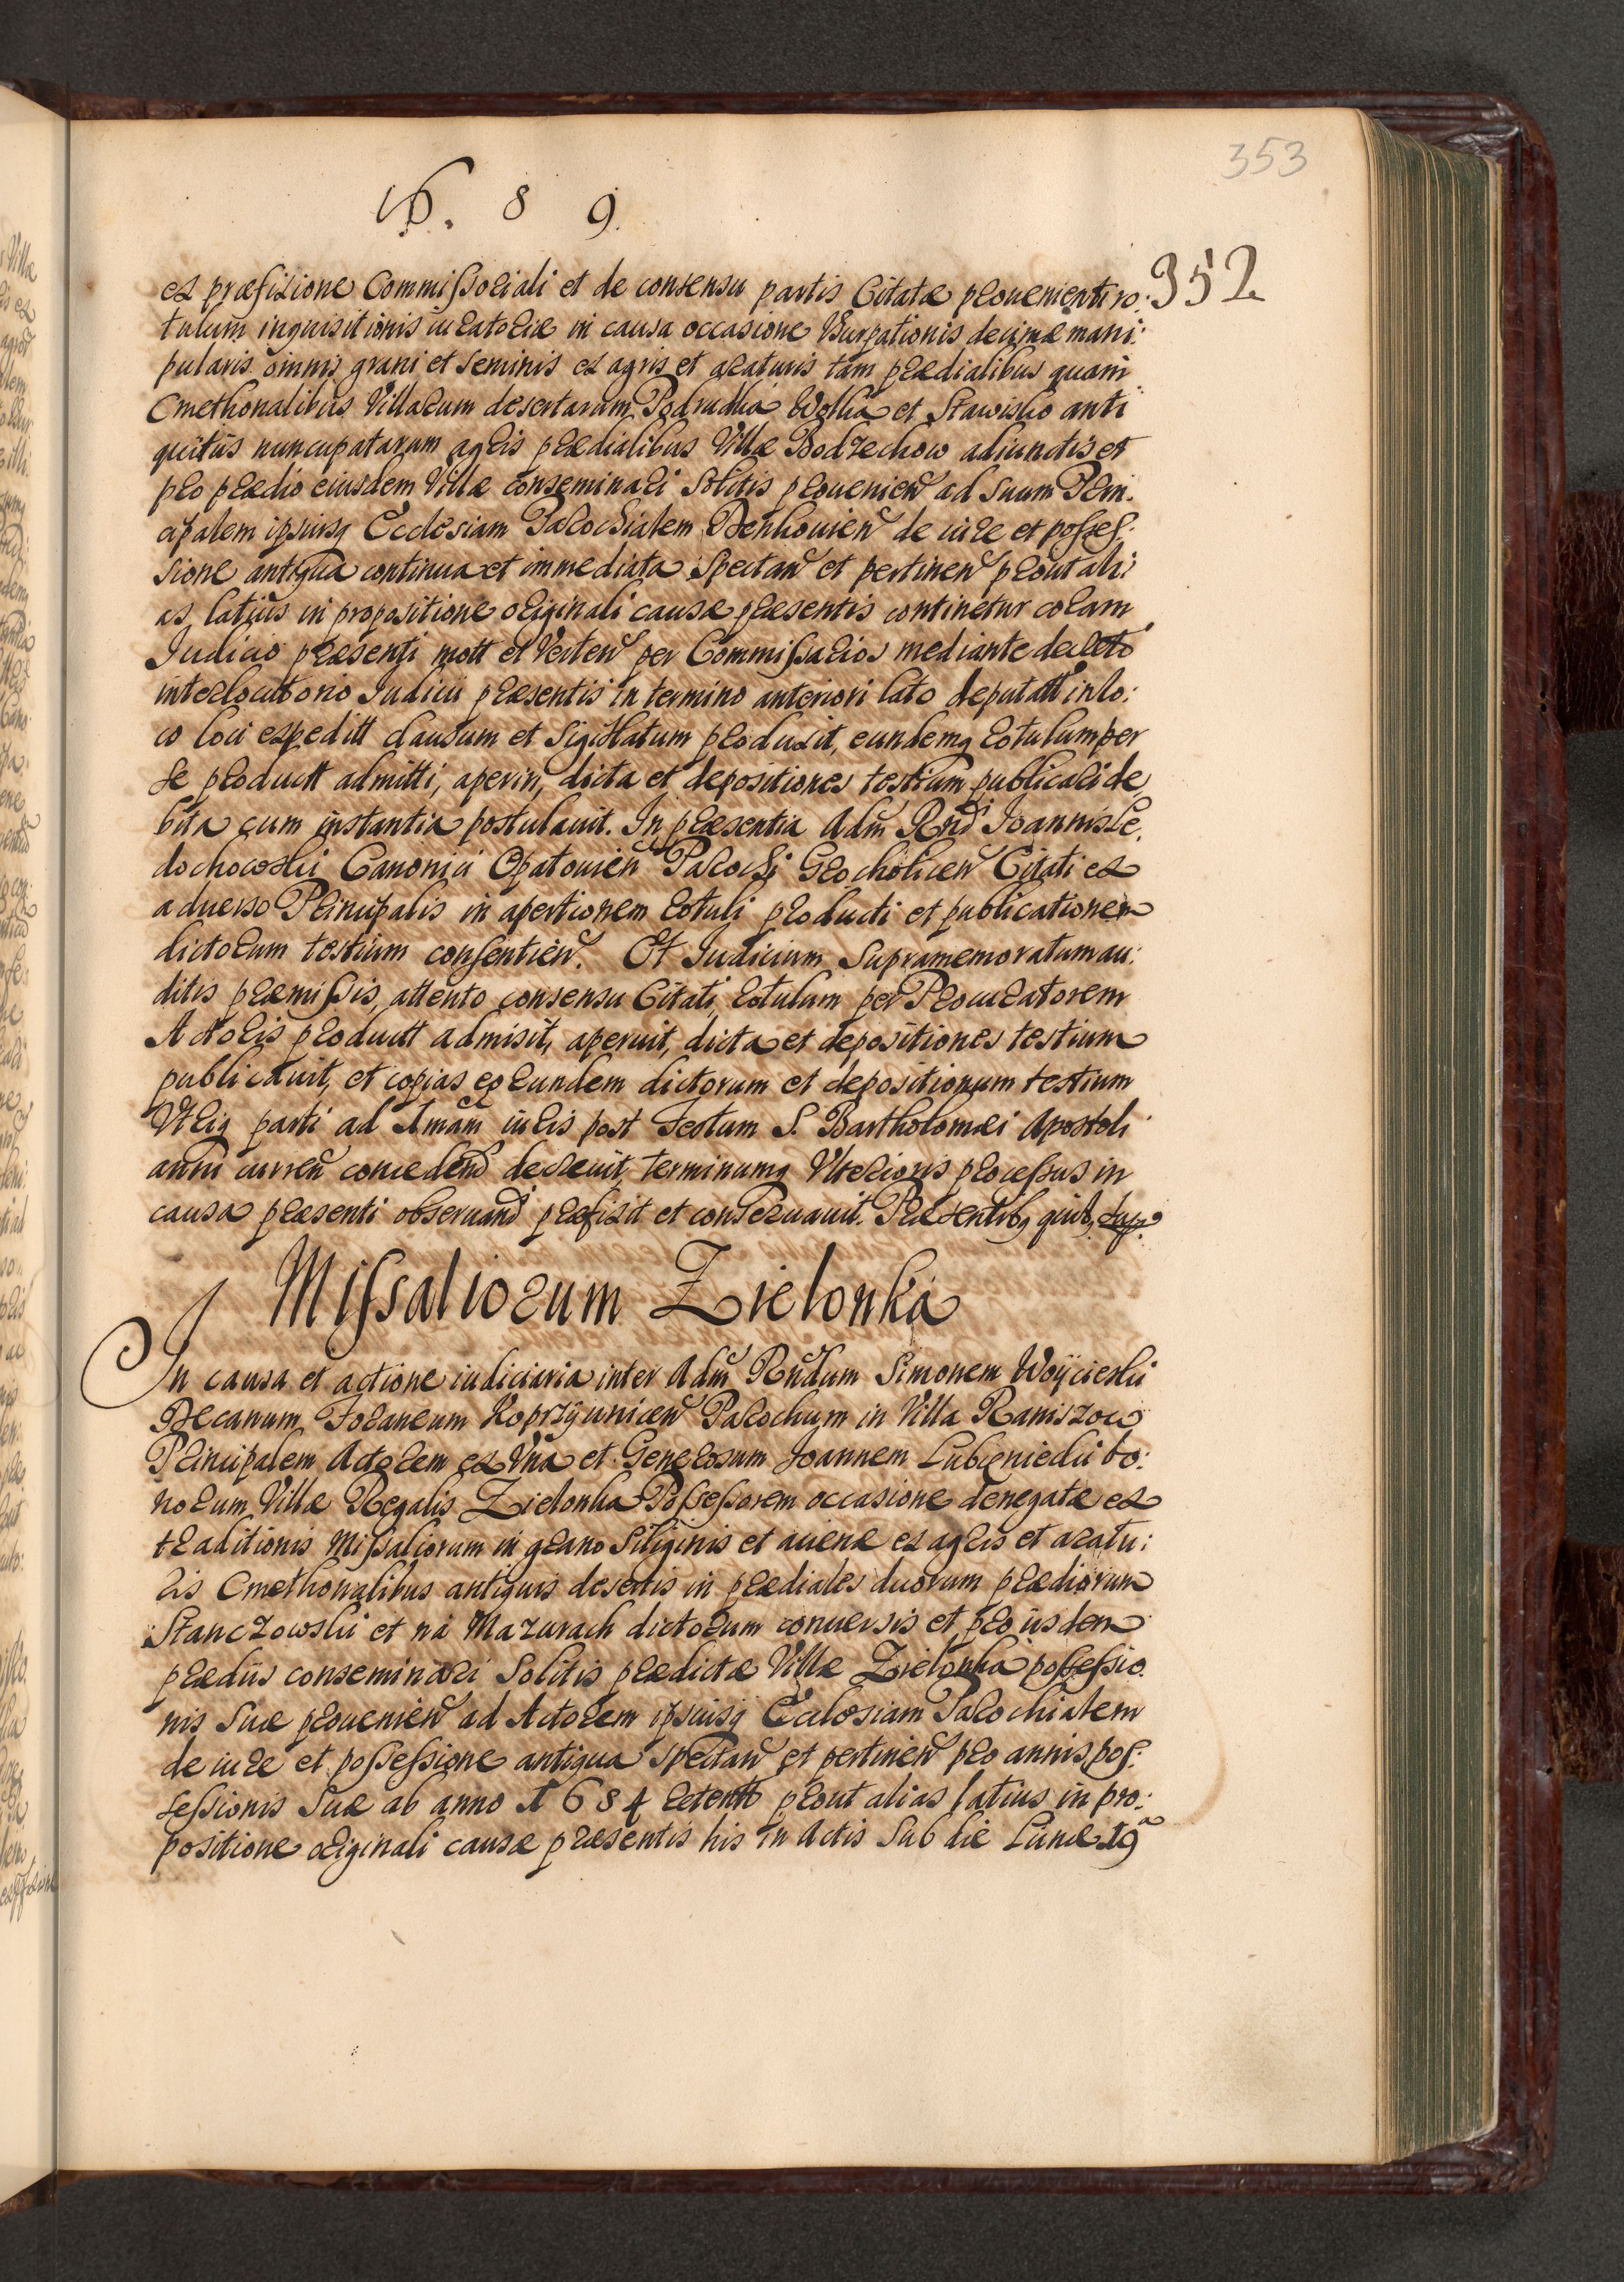 353
8 9.
352
ex præfixione Commissoriali et de consensu partis Citatæ prouenienti ro:
tulum inquisitionis iuratoriæ in causa occasione Vsurpationis decimæ mani:
pularis omnis grani et seminis ex agris et araturis tam prædialibus quam
Cmethonalibus Villarum desertarum Podrudka Wolka et Stawisko anti
quitus nuncupatarum agris prædialibus Villæ Bodzechow adiunctis et
pro prædio eiusdem Villæ conseminari Solitis prouenien ad Suum Prin:
cipalem ipsiusq Ecclesiam Parochialem Denkouien de iure et posses:
sione antiqua continua et immediata Spectan et pertinen prout ali:
as latius in propositione originali causæ præsentis continetur coram
Iudicio præsenti mott et Verten per Commissarios mediante decreto
interlocutorio Iudicii præsentis in termino anteriori lato deputatt in lo:
co loci expeditt clausum et Sigillatum produxit, eundemq rotulum per
se productt admitti, aperiri, dicta et depositiones testium publicari de
bita cum instantia postulauit. In præsentia Adm Rndi Ioannis Le:
dochowski Canonici Opatouien Parochi Grocholicen Citati ex
aduerso Principalis in apertionem rotuli producti et publicationem
dictorum testium consentien. Et Iudicium Supramemoratum au:
ditis præmissis, attento consensu Citati, rotulum per Procuratorem
Actoris productt admisit, aperuit, dicta et depositiones testium
publicauit, et copias eorundem dictorum et depositionum testium
Vtriq parti ad 1mam iuris post Festum S. Bartholomæi Apostoli
anni curren concedend decreuit, terminumq Vlterioris processus in
causa præsenti obseruand præfixit et conseruauit. Præsentibq quib. sup.
Missaliorum Zielonka
In causa et actione iudiciaria inter Adm Rndum Simonem Woycieski
Decanum Foraneum Koprzywnicen Parochum in Villa Raniszow
Principalem Actorem ex Vna et Generosum Joannem Lubieniecki bo:
norum Villæ Regalis Zielonka Possessorem occasione denegatæ ex
traditionis Missaliorum in grano Siliginis et auenæ ex agris et aratu:
ris Cmethonalibus antiquis desertis in prædiales duorum prædiorum
Stanczowski et na Mazurach dictorum conuersis et pro iisdem
prædiis conseminari Solitis prædictæ Villæ Zielonka possessio:
nis Suæ prouenien ad Actorem ipsiusq Ecclesiam Parochialem
de iure et possessione antiqua Spectan et pertinen pro annis pos:
sessionis Suæ ab anno 1684 retentt prout alias latius in pro:
positione originali causæ præsentis his in Actis Sub die Lunæ 19a